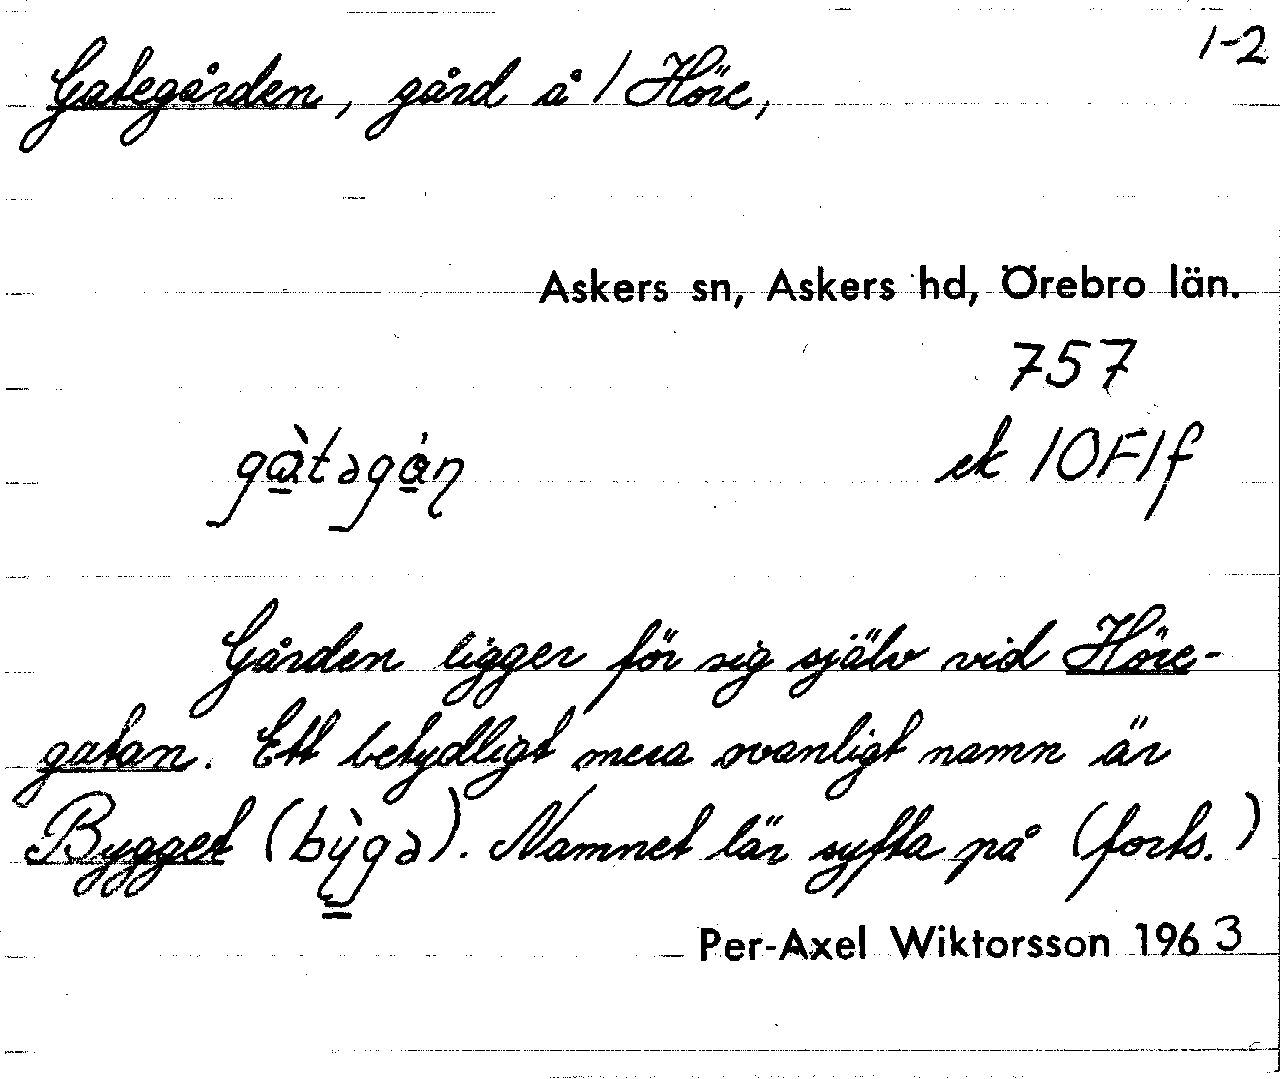 1-2
Gategården, gård å 1 Höre,
Askers sn, Askers hd, Örebro län.
757
gàtəgán
ek 10F1f
Gården ligger för sig själv vid Höre-
gatan. Ett betydligt mera ovanligt namn är
Bygget (bỳgə). Namnet lär syfta på (forts.)
Per-Axel Wiktorsson 1963